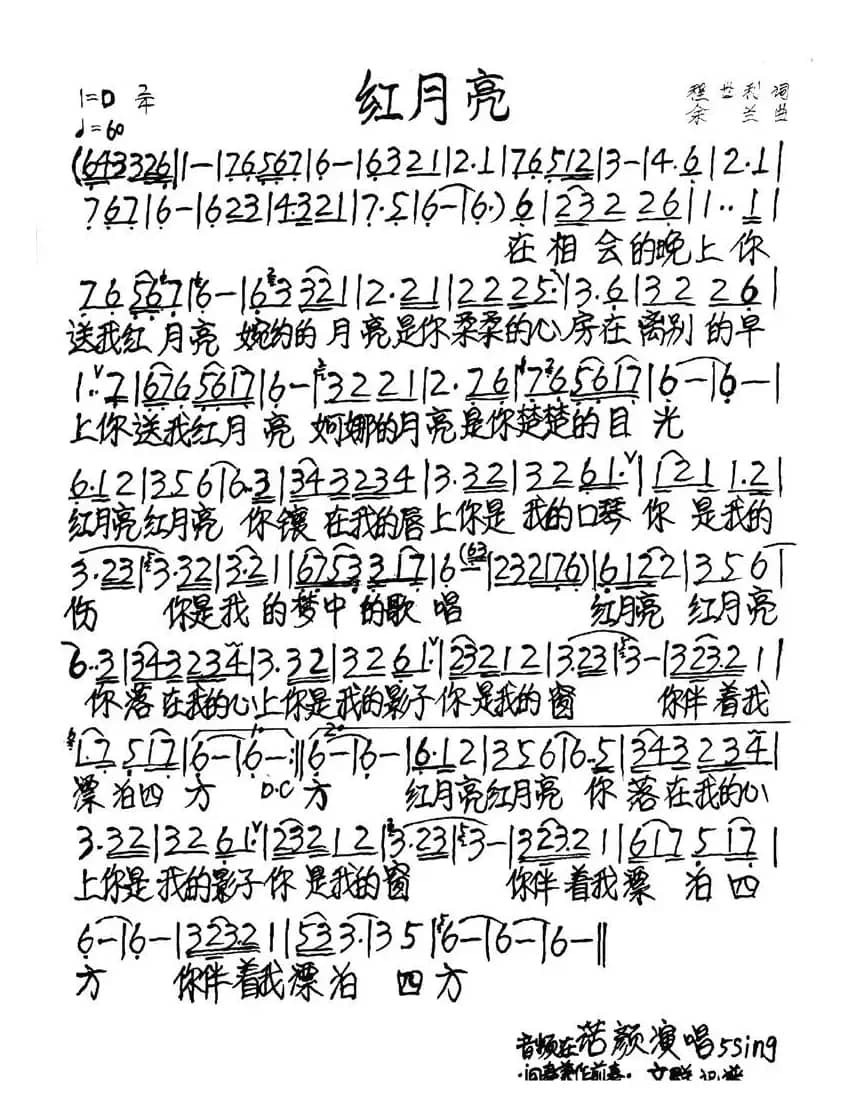 红月亮
1=D 2/4
♩=60
程世利 词
余兰 曲
(643326|1—|76567|6—|6321|2·1|76512|3—|4·6|2·1|
767|6—|623|4·321|7·5|6—|6·)6|232 26|1··1|
在相会的晚上你
76567|6—|63321|2·21|2225·|3·6|32 26|
送我红月亮 婉约的月亮是你柔柔的心房在离别的早
1·7|6765617|6—|3221|2·76|765617|6—|6—|
上你送我红月亮 婀娜的月亮是你楚楚的目光
6·12|356|6·3|343234|3·32|3261·|121 1·2|
红月亮红月亮 你镶在我的唇上你是我的口琴你是我的
3·23|3·32|3·21|67533 17|6(63|232176)|6122|356|
伤 你是我的梦中的歌唱 红月亮 红月亮
6··3|343234|3·32|3261·|23212|3·23|3—|323·21|
你落在我的心上你是我的影子你是我的窗 你伴着我
1·7517|6—|6—:‖6—|6—|6·12|356|6··5|343234|
漂泊四方 D.C 方 红月亮红月亮 你落在我的心
3·32|3261·|23212|3·23|3—|323·21|617517|
上你是我的影子你是我的窗 你伴着我漂泊四
6—|6—|323·21|533·|35|6—|6—|6—‖
方 你伴着我漂泊 四方
音频在若颜演唱5sing